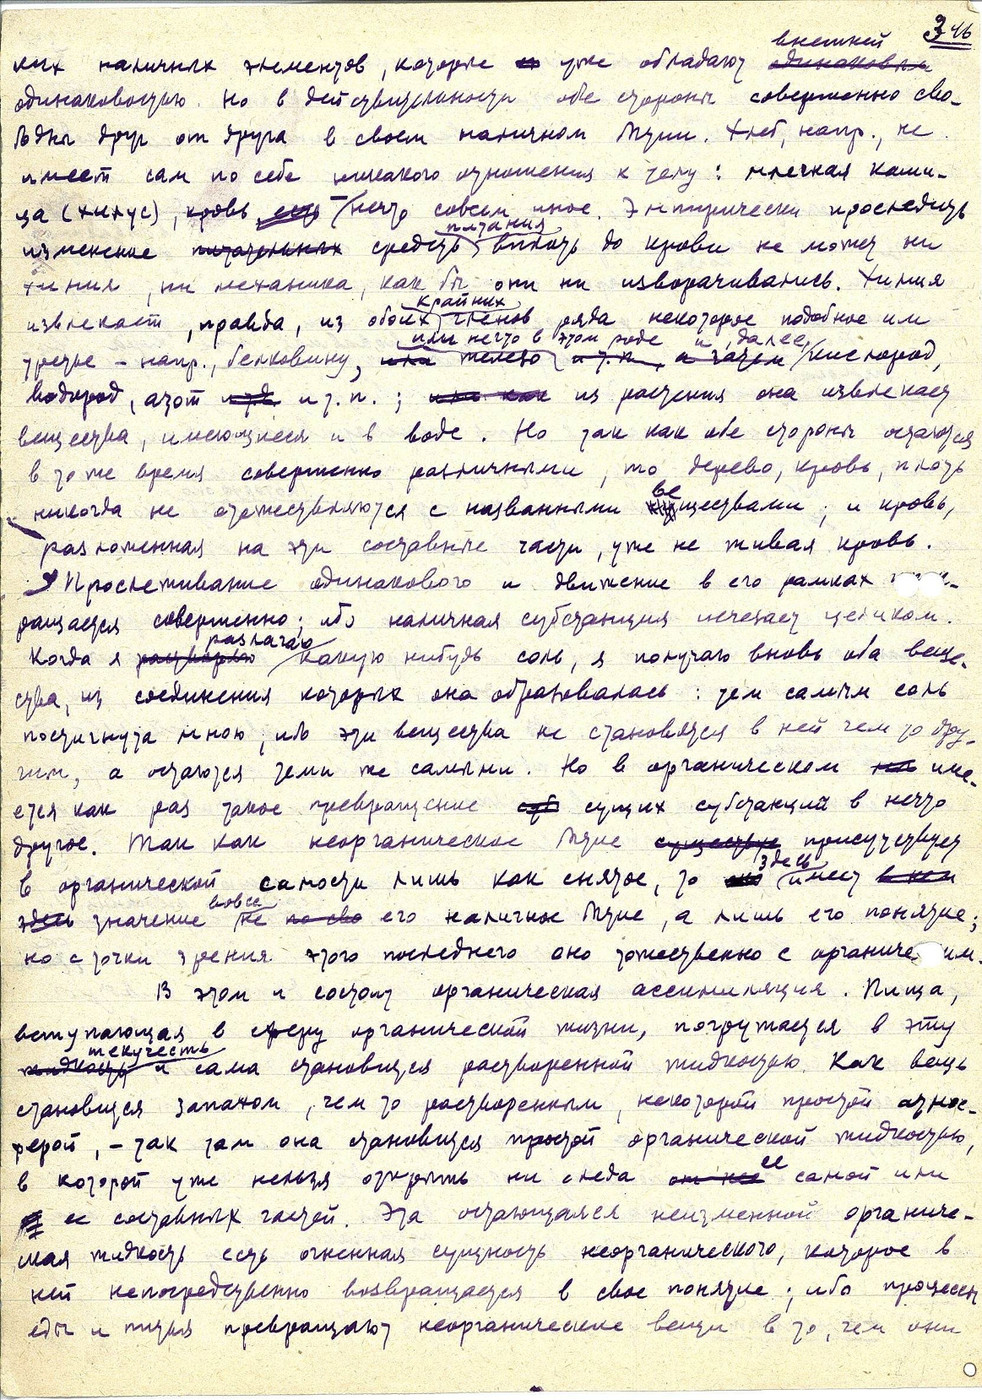 346
внешней
ких наличных элементов, которые уже обладают одинаковым
одинаковостью. Но в действительности обе стороны совершенно сво-
бодны друг от друга в своем наличном бытии. Хлеб, напр., не
имеет сам по себе никакого отношения к телу: млечная каши-
ца (хилус), кровь есть – нечто совсем иное. Эмпирически проследить
питания
изменение питательных средств вплоть до крови не может ни
химия, ни механика, как бы они ни изворачивались. Химия
крайних
извлекает, правда, из обоих членов ряда некоторое подобное им
или нечто в этом роде и, далее,
третье – напр., белковину, или железо и т.п., а затем кислород,
водород, азот и т.п.; из растения она извлекает
вещества, имеющиеся и в воде. Но так как обе стороны остаются
в то же время совершенно различными, то дерево, кровь, плоть
ве
никогда не отожествляются с названными ществами; и кровь,
разложенная на эти составные части, уже не живая кровь.
Прослеживание одинакового и движение в его рамках
ращается совершенно; ибо наличная субстанция исчезает целиком.
разлагаю
Когда я растворяю какую нибудь соль, я получаю вновь оба веще-
ства, из соединения которых она образовалась: тем самым соль
постигнута мною, ибо эти вещества не становятся в ней чем то дру-
гим, а остаются теми же самыми. Но в органическом име-
ется как раз такое превращение суб сущих субстанций в нечто
другое. Так как неорганическое бытие существует присутствует
здесь
в органической самости лишь как снятое, то имеет в нем
вовсе
здесь значение не по сво его наличное бытие, а лишь его понятие;
но с точки зрения этого последнего оно тожественно с органиче им.
В этом и состоит органическая ассимиляция. Пища,
вступающая в сферу органической жизни, погружается в эту
текучесть
жидкость и сама становится растворенной жидкостью. Как вещь
становится запахом, чем то растворенным, некоторой простой атмос-
ферой, – так там она становится простой органической жидкостью,
ее
в которой уже нельзя открыть ни следа от нее самой или
ее составных частей. Эта остающаяся неизменной органиче-
ская жидкость есть огненная сущность неорганического, которое в
ней непосредственно возвращается в свое понятие; ибо процессы
еды и питья превращают неорганические вещи в то, чем они